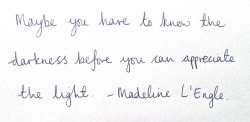 Maybe you have to know the
darkness before you can appreciate
the light. - Madeline L'Engle.